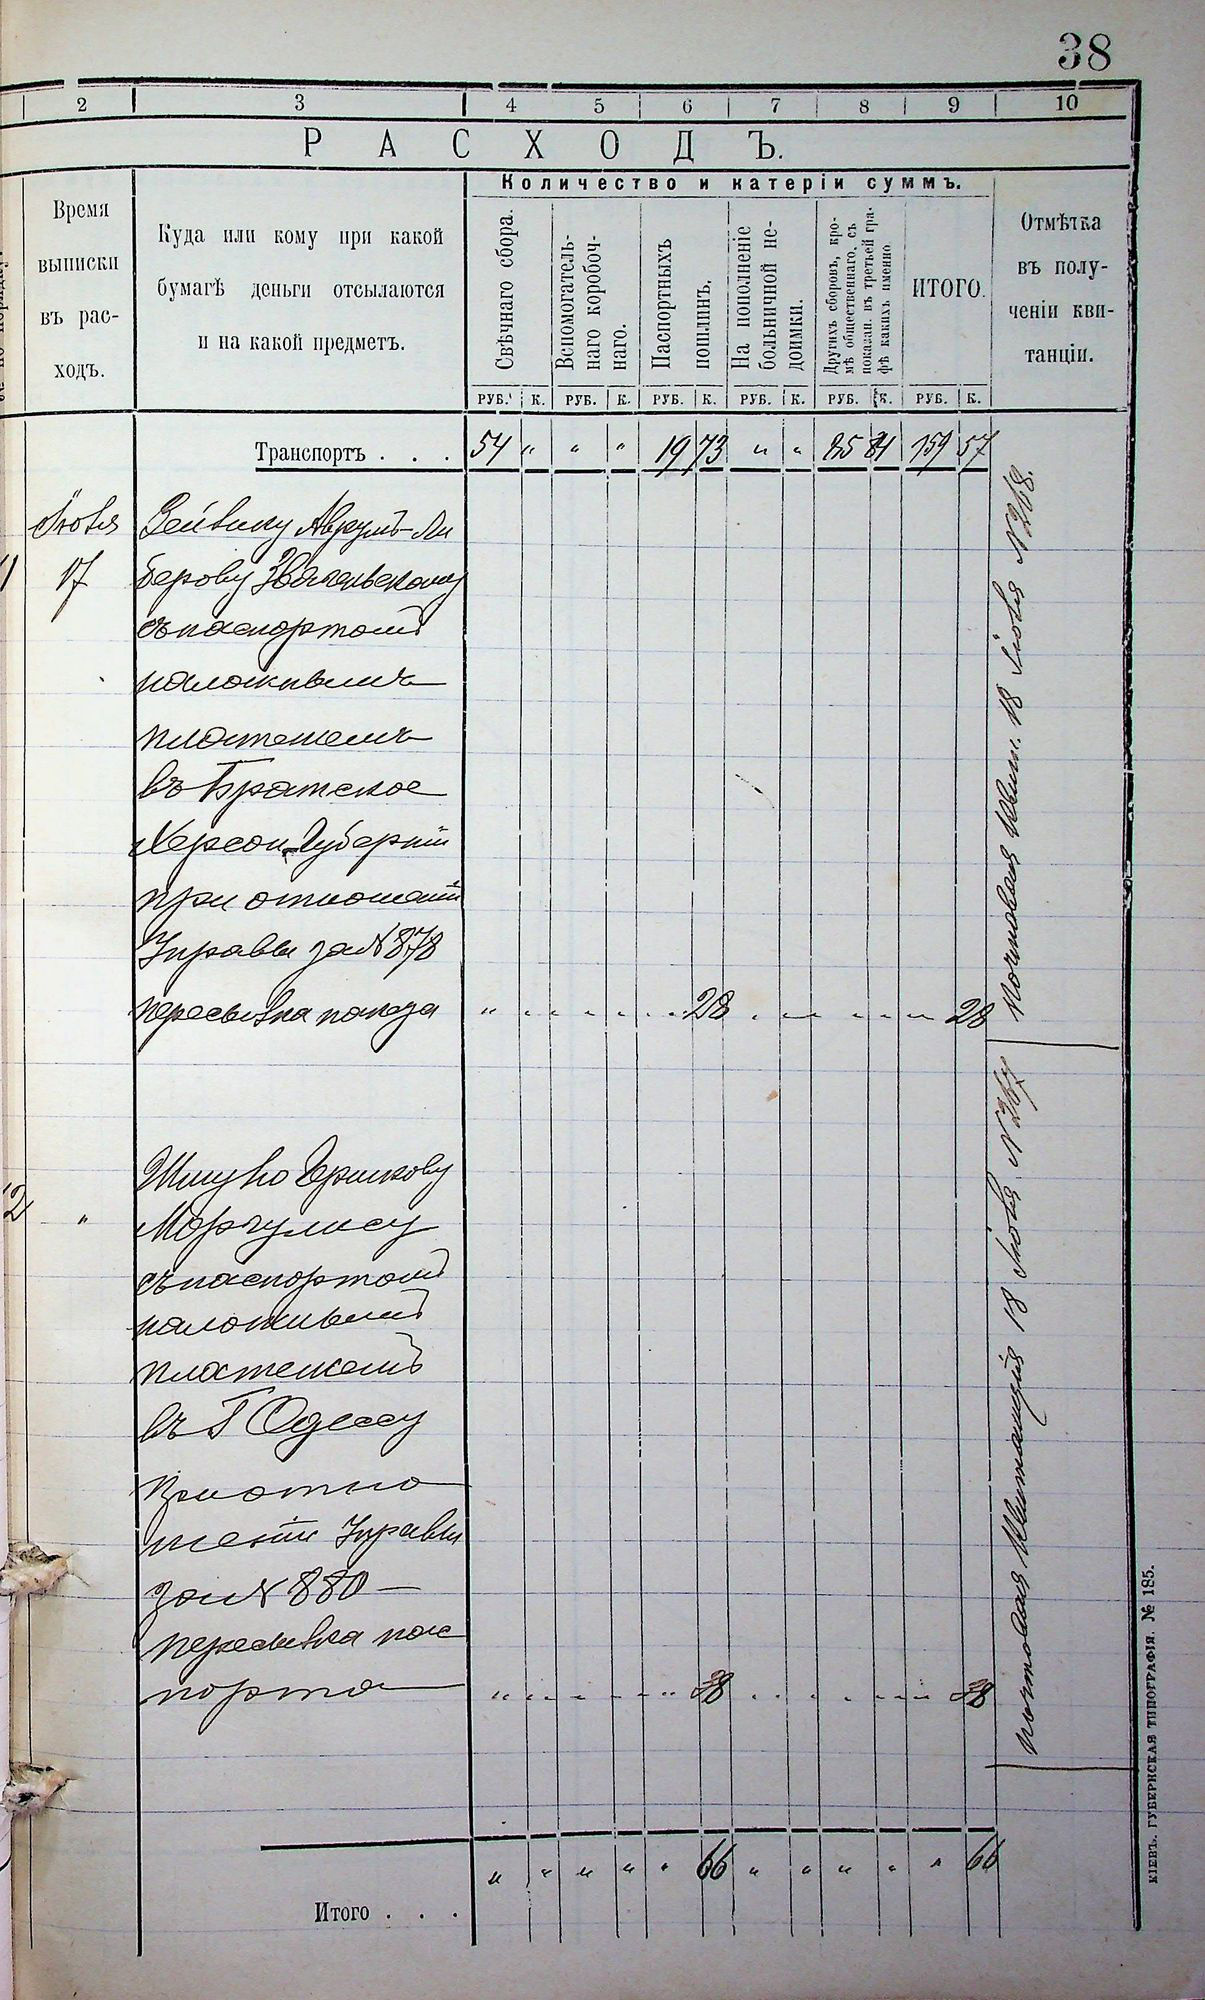 38
2 3 4 5 6 7 8 9 10
РАСХОДЪ.
Количество и катеріи суммъ.
Время
выписки
въ рас-
ходъ.
Куда или кому при какой
бумагѣ деньги отсылаются
и на какой предметъ.
Свѣчнаго сбора.
Вспомогатель-
наго коробоч-
наго.
Паспортныхъ
пошлинъ.
На пополненіе
больничной не-
доимки.
Другихъ сборовъ, кро-
мѣ общественнаго, съ
показан. въ третьей гра-
фѣ какихъ именно.
ИТОГО.
Отмѣтка
въ полу-
ченіи кви-
танціи.
РУБ. К. РУБ. К. РУБ. К. РУБ. К. РУБ. К. РУБ. К.
Транспортъ . . . 54 „ „ „ 19 73 „ „ 85 84 159 57
Іюля
17
съ паспортомъ
наложнымъ
платежемъ
въ Братское
Херсон. Губерніи
при отношеніи
Управы за № 878
пересылка 28 28
Почтовая квит. 18 Іюля № 268.
„
Гершкову
Моргулису
съ паспортомъ
наложнымъ
платежемъ
въ Г Одессу
при отно
шеніи Управы
за № 880 —
пересылка пас
порта 38 38
почтовая Квитанція 18 Іюля № 267
Итого . . . „ „ „ „ „ 66 „ „ „ „ „ 66
КІЕВЪ. ГУБЕРНСКАЯ ТИПОГРАФІЯ. № 185.